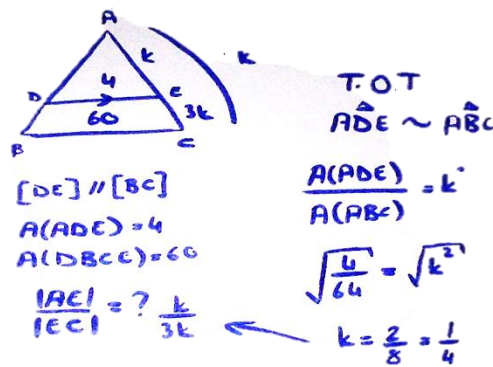 A
k
k
4
D
E
60
3k
B
C
[DE] // [BC]
A(ADE) = 4
A(DBCE) = 60
|AE| / |EC| = ? k / 3k
T.O.T
ADE ~ ABC
A(ADE) / A(ABC) = k²
√4/64 = √k²
k = 2/8 = 1/4